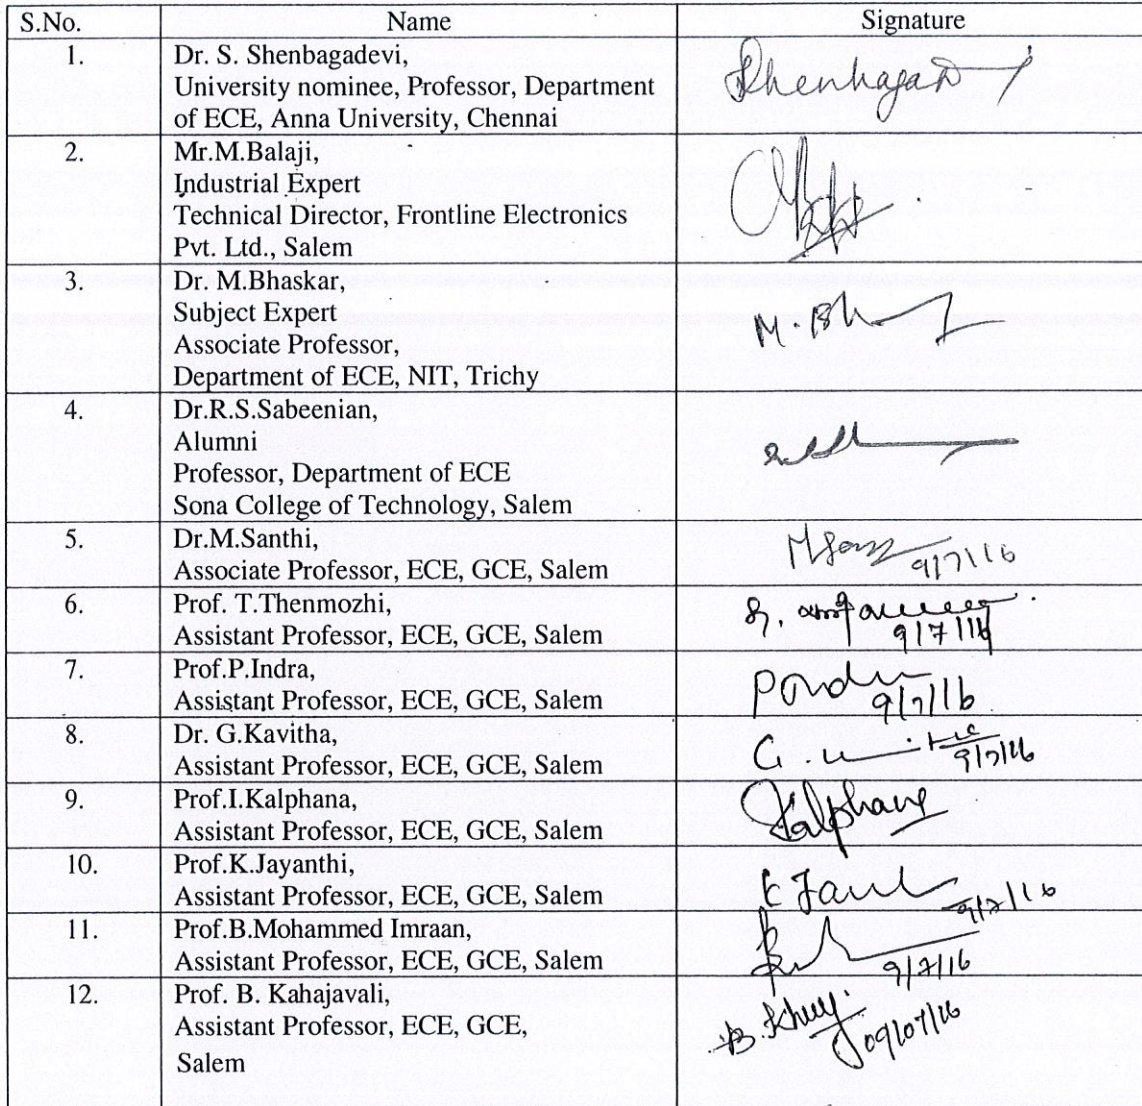 S.No. Name Signature
1. Dr. S. Shenbagadevi,
University nominee, Professor, Department
of ECE, Anna University, Chennai
2. Mr.M.Balaji,
Industrial Expert
Technical Director, Frontline Electronics
Pvt. Ltd., Salem
3. Dr. M.Bhaskar,
Subject Expert
Associate Professor,
Department of ECE, NIT, Trichy
4. Dr.R.S.Sabeenian,
Alumni
Professor, Department of ECE
Sona College of Technology, Salem
5. Dr.M.Santhi,
Associate Professor, ECE, GCE, Salem 9/7/16
6. Prof. T.Thenmozhi,
Assistant Professor, ECE, GCE, Salem 9/7/16
7. Prof.P.Indra,
Assistant Professor, ECE, GCE, Salem 9/7/16
8. Dr. G.Kavitha,
Assistant Professor, ECE, GCE, Salem 9/7/16
9. Prof.I.Kalphana,
Assistant Professor, ECE, GCE, Salem
10. Prof.K.Jayanthi,
Assistant Professor, ECE, GCE, Salem 9/7/16
11. Prof.B.Mohammed Imraan,
Assistant Professor, ECE, GCE, Salem 9/7/16
12. Prof. B. Kahajavali,
Assistant Professor, ECE, GCE, 09/07/16
Salem